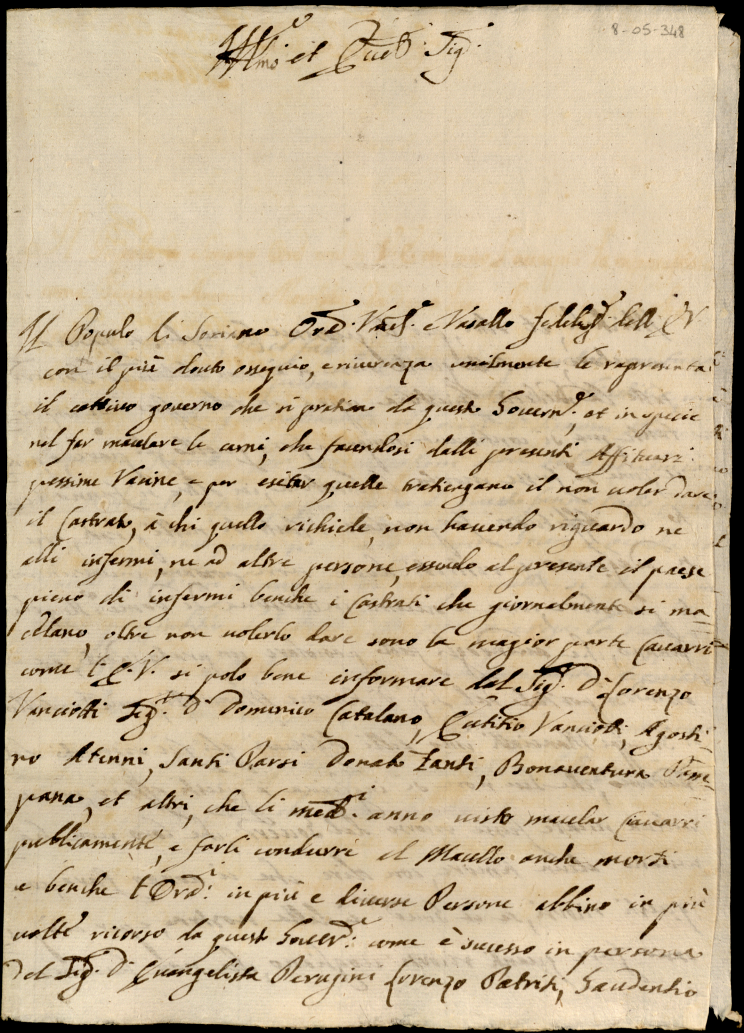 8-05-348
Ill.mo et Ecc.mo Sig.
Il Populo di Soriano Ord.
con il più douto ossequio, e riuerenza umilmente le rapresenta
il cattiuo gouerno che si pratica da questo Gouern.e, et in specie
nel far macelare le carni, che facendosi dalli presenti Affituari
pessime Vacine, e per esitar quelle tratiengano il non uoler dare
il Castrato, à chi quello richiede, non hauendo riguardo ne
alli infermi, ne ad altre persone, essendo al presente il paese
pieno di infermi benche i Castrati che giornalmente si ma=
celano, oltre non uolerlo dare sono la magior parte Cauarri
come l'E.V. si polo bene informare dal Sig. D. Lorenzo
Vanciotti Sig. D. Domenico Catalano, Vanciotti, Agosti=
no Atenni, Santi Parsi Donato Fanti, Bonauentura Pam=
pana, et altri, che li med.i anno uisto macelar Cauarri
publicamente, e farli condurre al Macello anche morti
e benche l'Ord.i in più e diuerse Persone abbino in più
uolte ricorso da questo Gouer.e come è sucesso in persona
del Sig. D. Euangelista Perugini Lorenzo Patrisi, Gaudentio